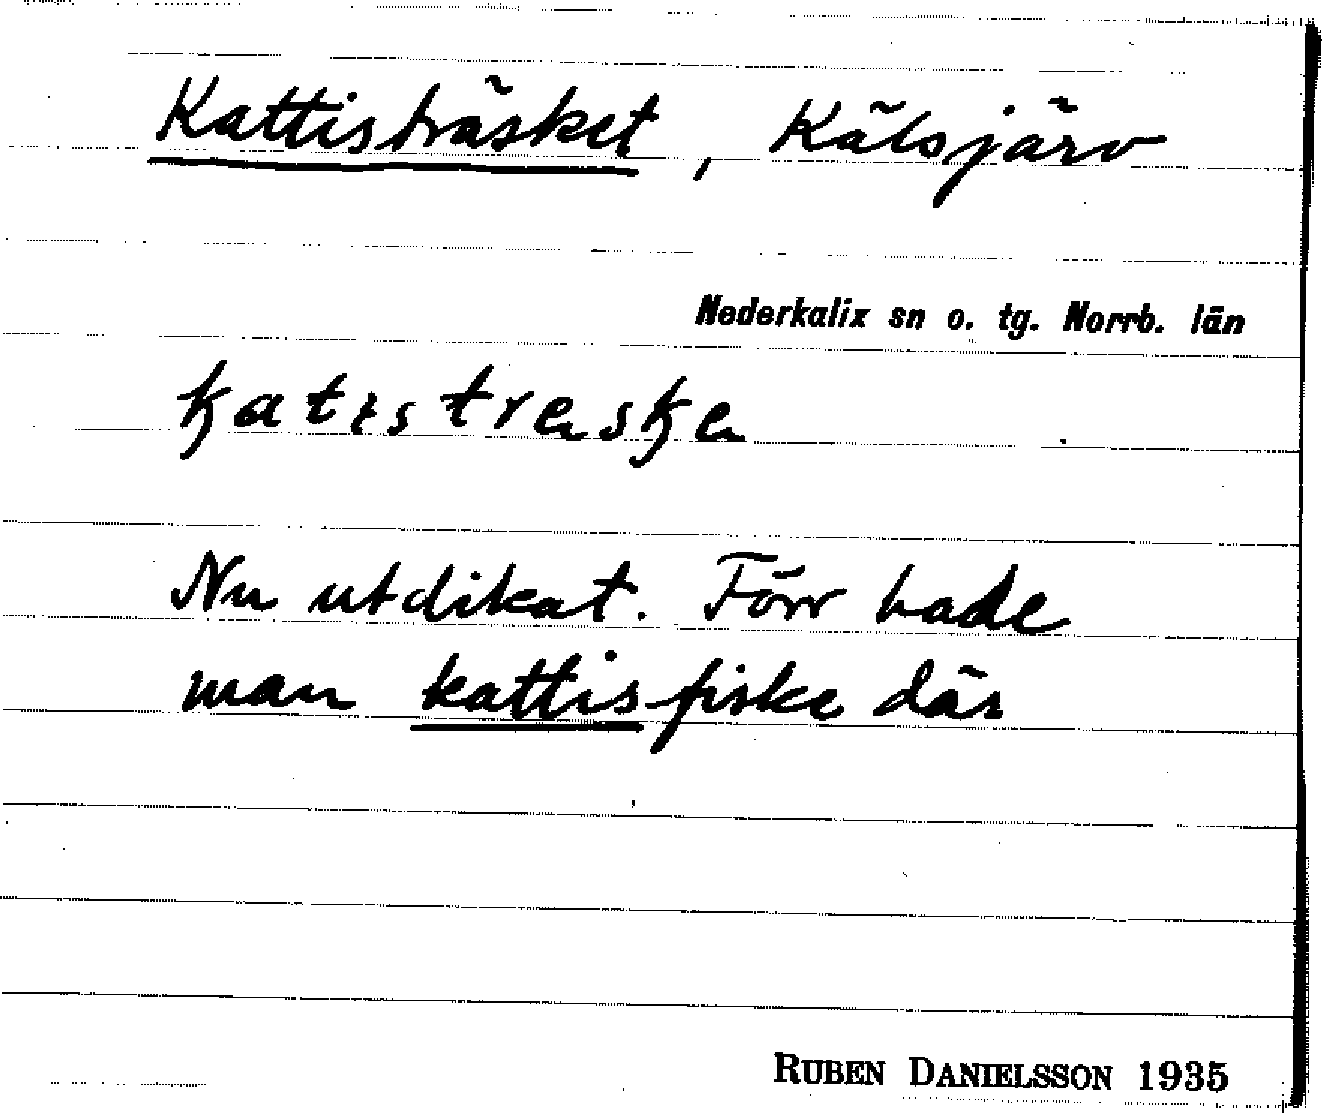 Kattisträsket, Kälsjärv
Nederkalix sn o. tg. Norrb. län
katistræskæ
Nu utdikat. Förr hade
man kattisfiske där
RUBEN DANIELSSON 1935